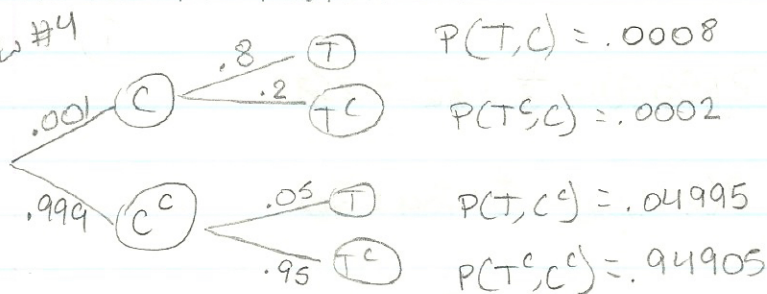 #4
.8 T P(T,C) = .0008
.001 C
.2 T^C P(T^C,C) = .0002
.999 C^C
.05 T P(T,C^C) = .04995
.95 T^C P(T^C,C^C) = .94905